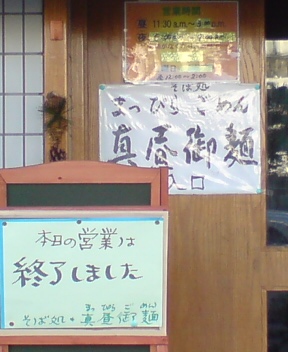 営業時間
昼 11:30a.m.～
夜
そば処
まっぴらごめん
真昼御麺
入口
本日の営業は
終了しました
まっぴらごめん
そば処・真昼御麺